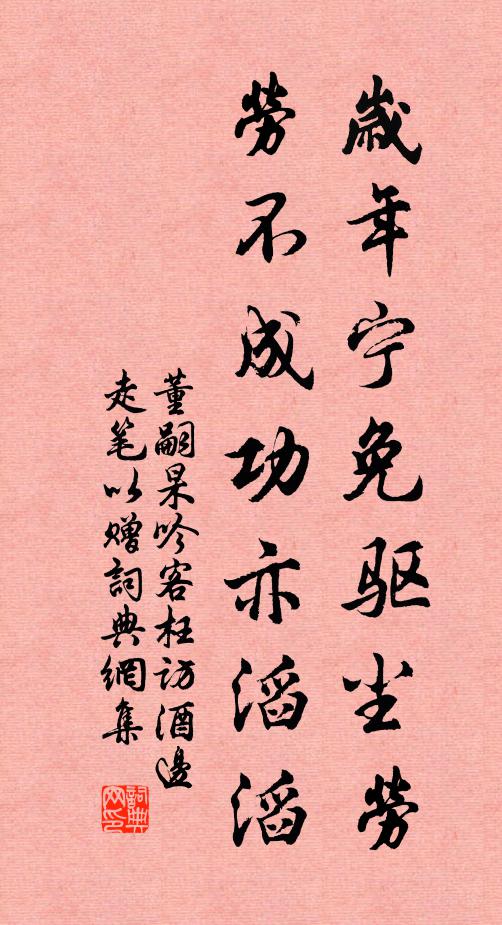 歲年宁免驱尘劳
劳不成功亦滔滔
董嗣杲吟客枉访酒邊
走笔以赠詞典網集
詞典网印